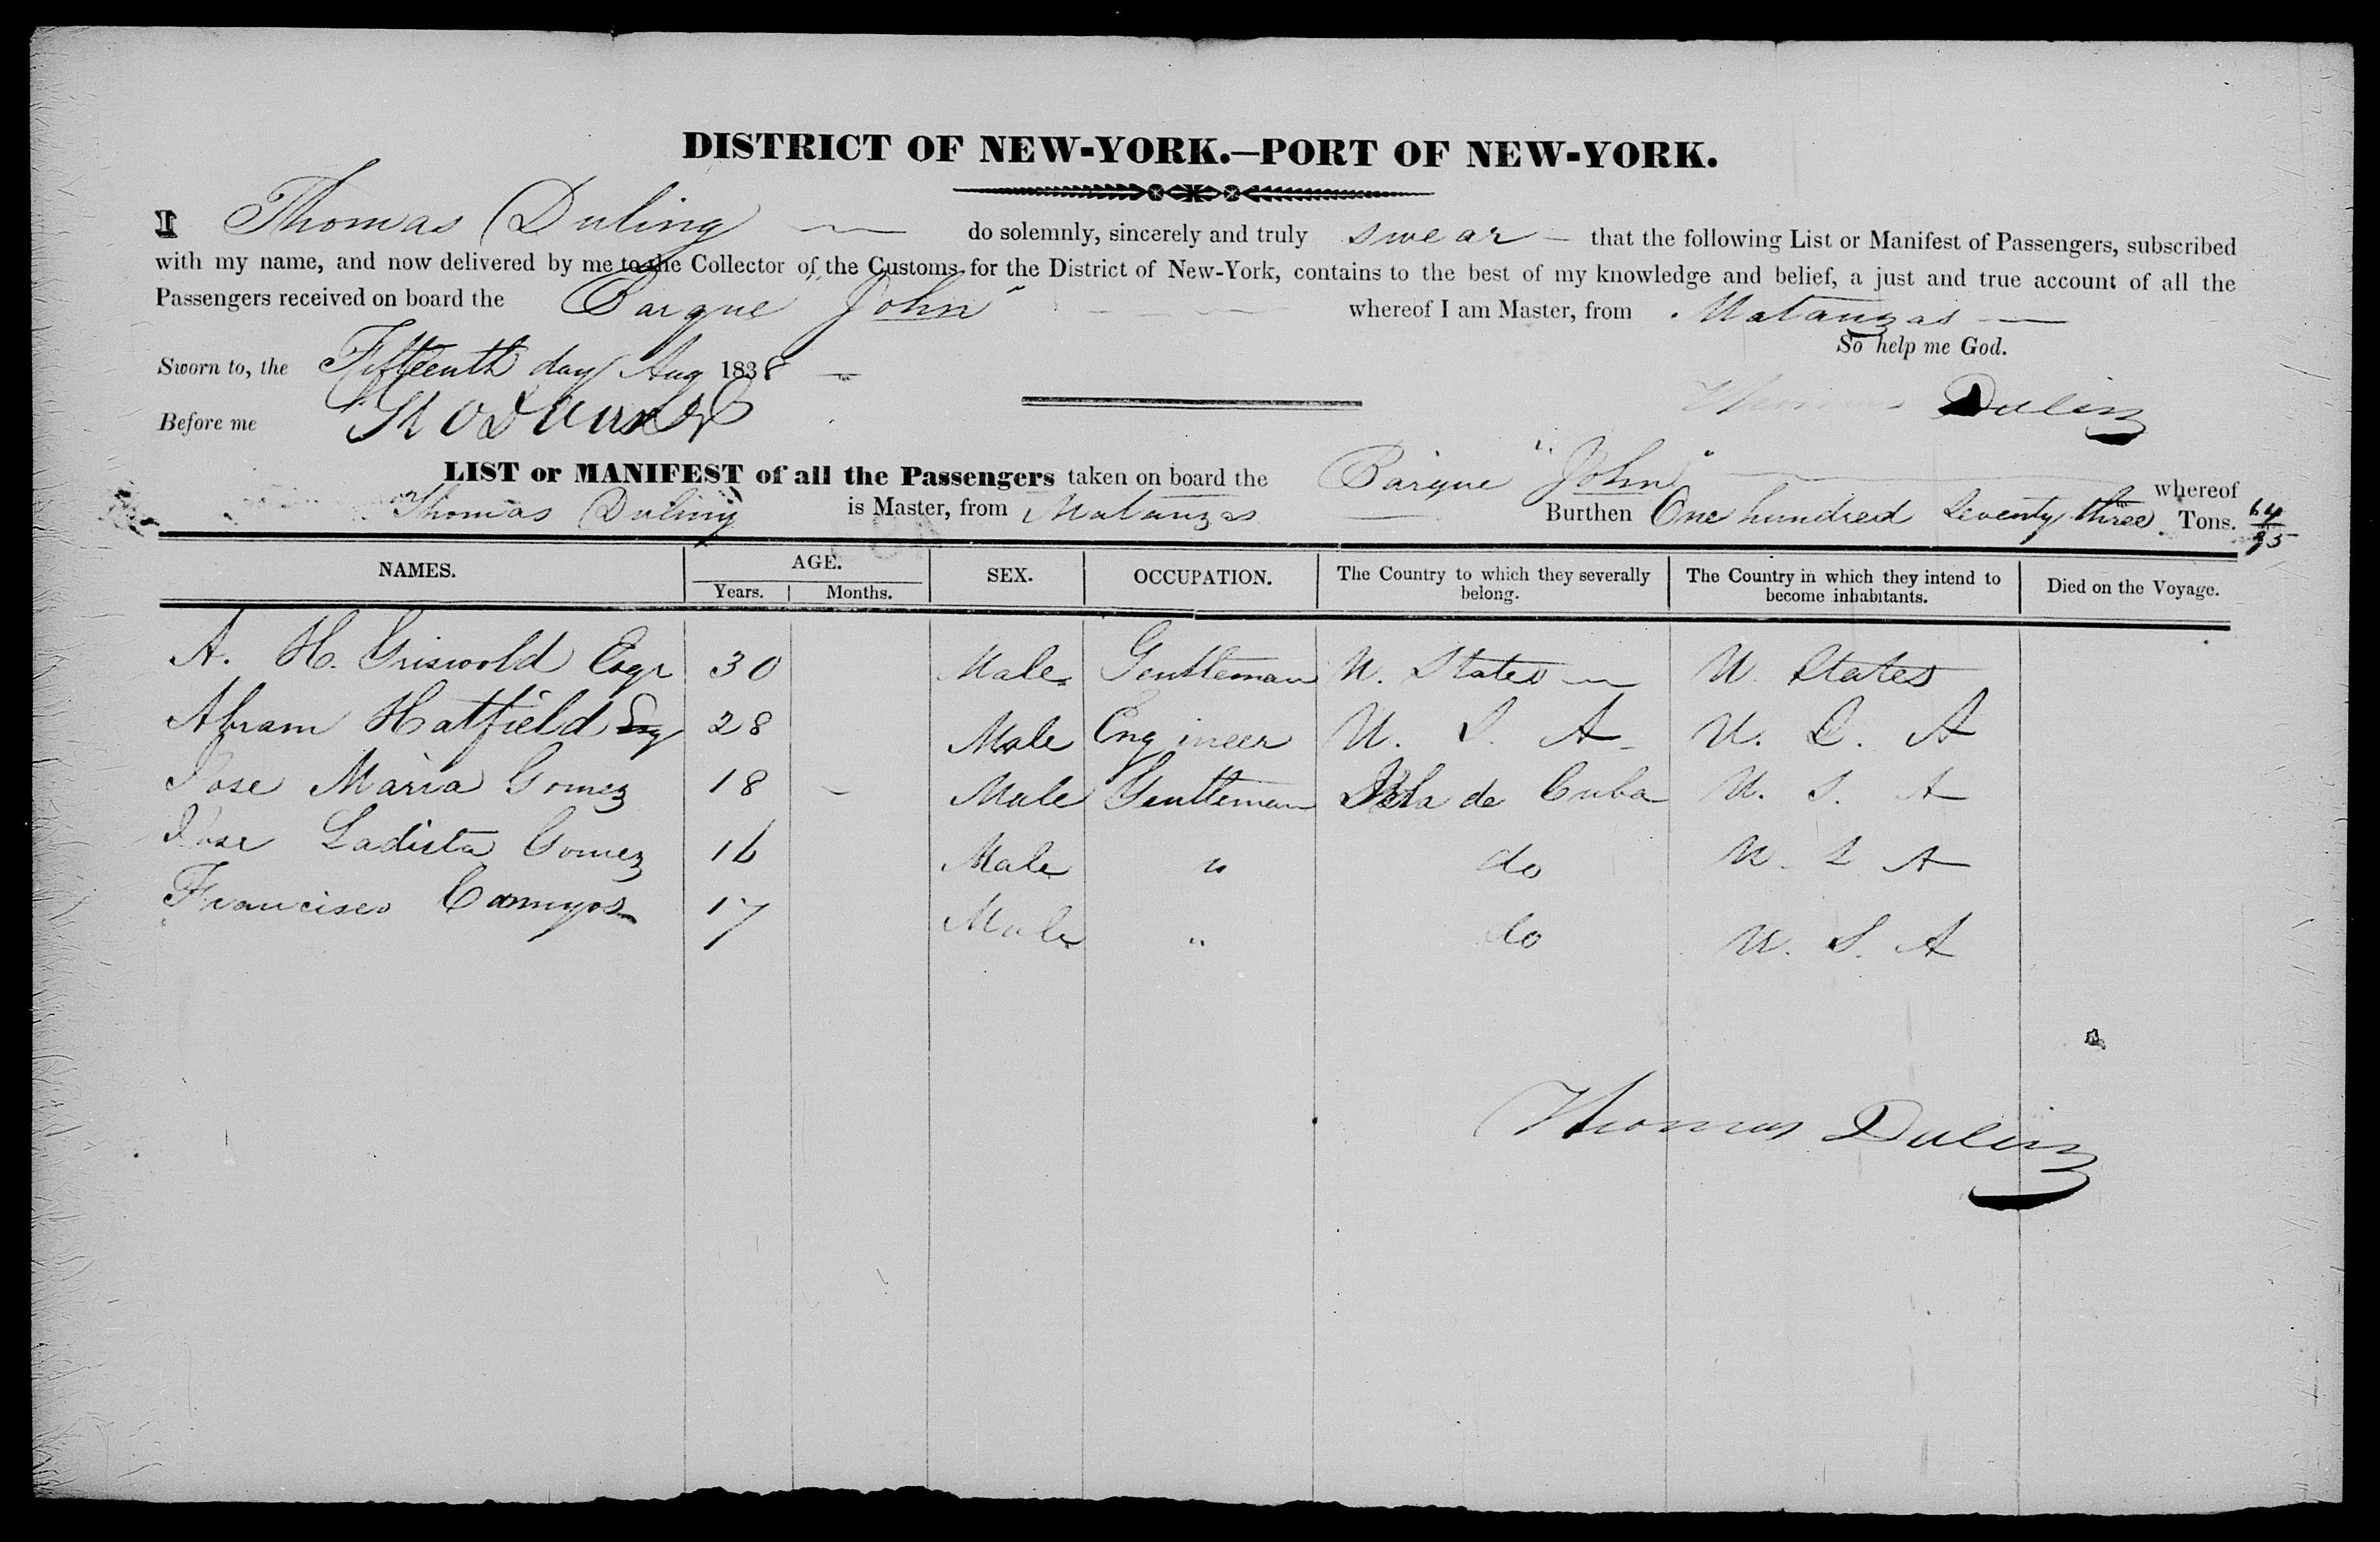 DISTRICT OF NEW-YORK.—PORT OF NEW-YORK.
I Thomas Duling do solemnly, sincerely and truly swear – that the following List or Manifest of Passengers, subscribed
with my name, and now delivered by me to the Collector of the Customs for the District of New-York, contains to the best of my knowledge and belief, a just and true account of all the
Passengers received on board the Barque "John" whereof I am Master, from Matanzas
So help me God.
Sworn to, the Fifteenth day Aug 1838
Thomas Duling
Before me
LIST or MANIFEST of all the Passengers taken on board the Barque "John" whereof
Thomas Duling is Master, from Matanzas Burthen One hundred Seventy three Tons. 64/95
NAMES. AGE. SEX. OCCUPATION. The Country to which they severally belong. The Country in which they intend to become inhabitants. Died on the Voyage.
Years. Months.
A. H. Griswold Esqr 30 Male Gentleman U. States U. States
Abram Hatfield Esq 28 Male Engineer U. S. A U. S. A
Jose Maria Gomez 18 – Male Gentleman Isla de Cuba U. S. A
Jose Gomez 16 Male " do U. S A
Francisco 17 Male " do U. S. A
Thomas Duling